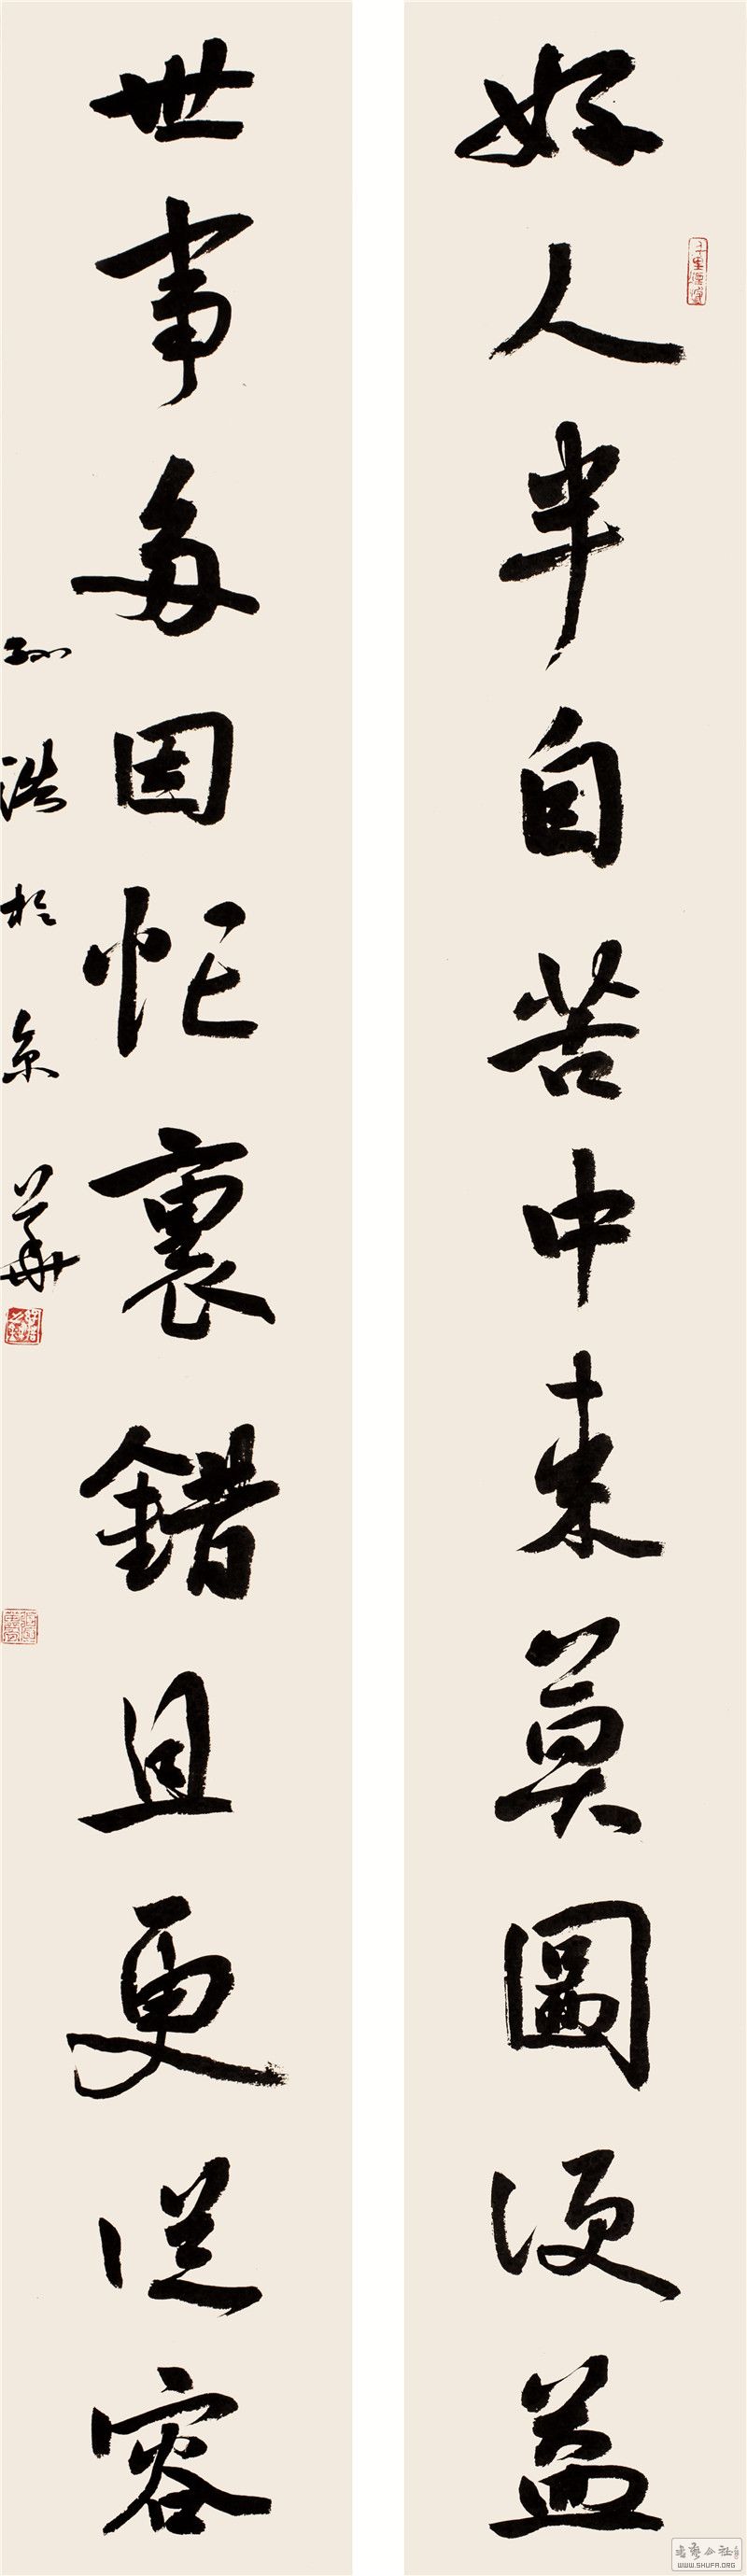 好人半自苦中来莫圖便益
世事多因忙裏錯且更從容
孙浩於京華
WWW.SHUFA.ORG